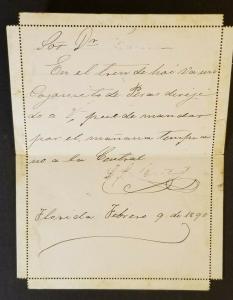 Sor Dr
En el tren de hoi va un
Cajoncito de Peras diriji
do a V. puede mandar
por el, mañana tempra
no a la Central
Florida Febrero 9 de 1890